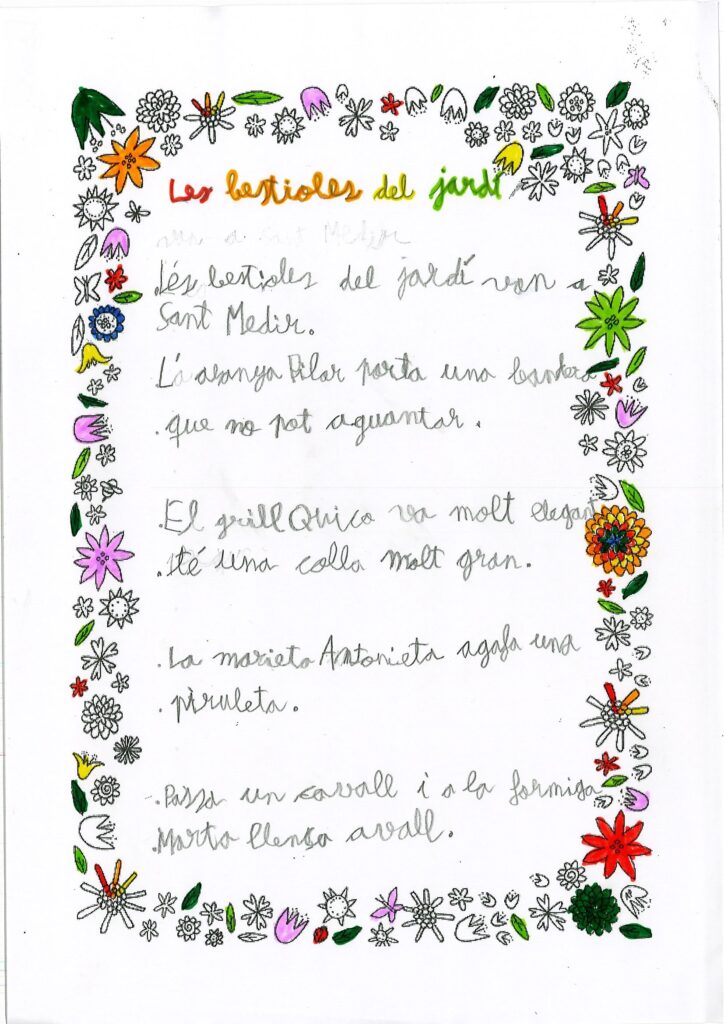 Les bestioles del jardí
van a Sant Medir
Les bestioles del jardí van a
Sant Medir.
L'aranya Pilar porta una bandera
que no pot aguantar.
El grill Quico va molt elegant
té una colla molt gran.
La marieta Antonieta agafa una
piruleta.
Passa un cavall i a la formiga
Marta llença avall.